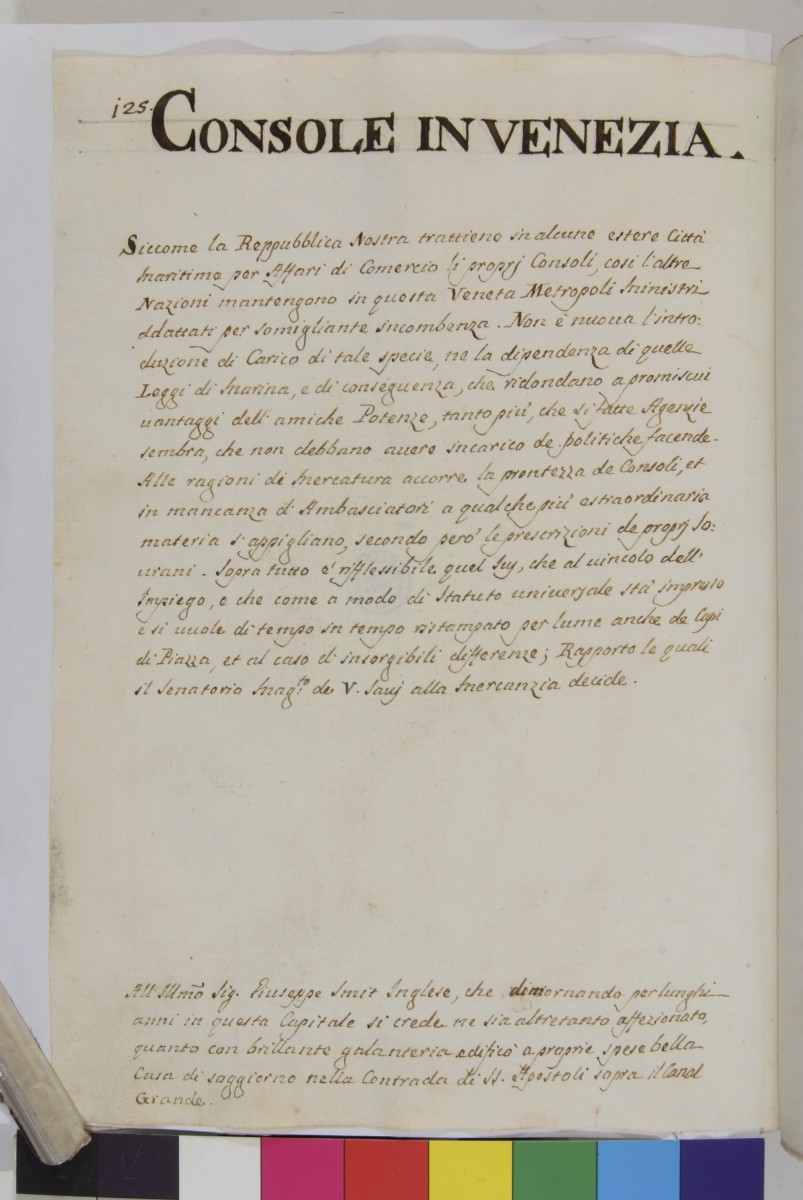 125.
CONSOLE IN VENEZIA.
Siccome la Reppubblica Nostra trattiene in alcune estere Città
maritime per Affari di Comercio li proprj Consoli, così l'altre
Nazioni mantengono in questa Veneta Metropoli Ministri
addattati per somigliante incombenza. Non è nuova l'intro:
duzione di Carico di tale specie, ne la dipendenza di quelle
Leggi di Marina, e di conseguenza, che ridondano a promiscui
vantaggi dell'amiche Potenze, tanto più, che si fatte Agenzie
sembra, che non debbano avere incarico de politiche facende.
Alle ragioni di Mercatura accorre la prontezza de Consoli, et
in mancanza d'Ambasciatori a qualche più estraordinaria
materia s'appigliano, secondo però le prescrizioni de proprj So:
vrani. Sopra tutto è rifflessibile quel Jus, che al vincolo dell'
Impiego, e che come a modo di Statuto universale stà impresso
e si vuole di tempo in tempo ristampato per lume anche de Capi
di Piazza, et al caso d'insorgibili differenze; Rapporto le quali
il Senatorio Mag:to de V. Savj alla Mercanzia decide.
All Illmo Sig. Giuseppe Smit Inglese, che dimornando per lunghi
anni in questa Capitale si crede ne sia altretanto affezionato,
quanto con brillante galanteria edificò a proprie spese bella
Casa di soggiorno nella Contrada di SS. Apostoli sopra il Canal
Grande.